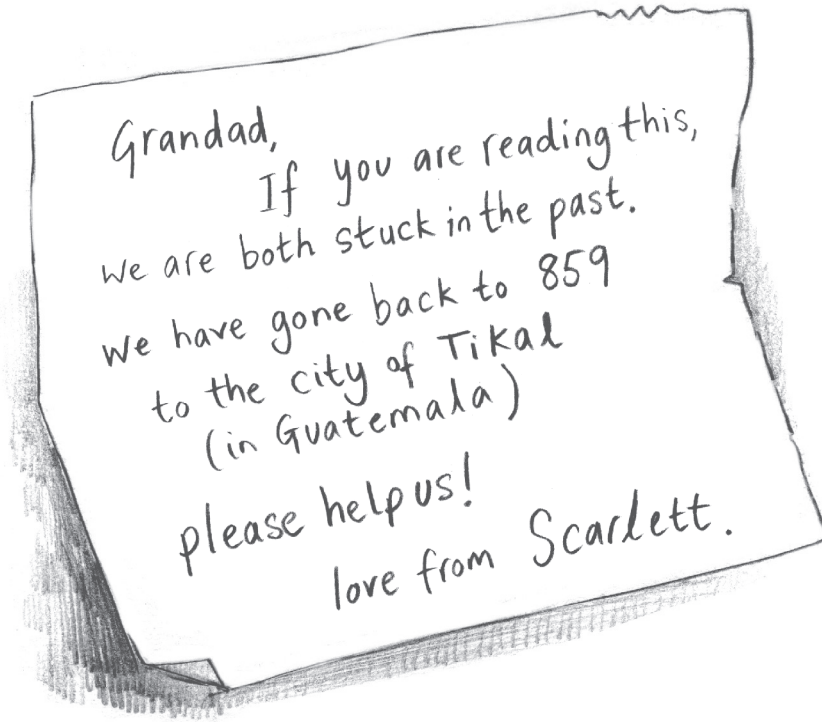 Grandad,
If you are reading this,
we are both stuck in the past.
we have gone back to 859
to the city of Tikal
(in Guatemala)
please help us!
love from Scarlett.